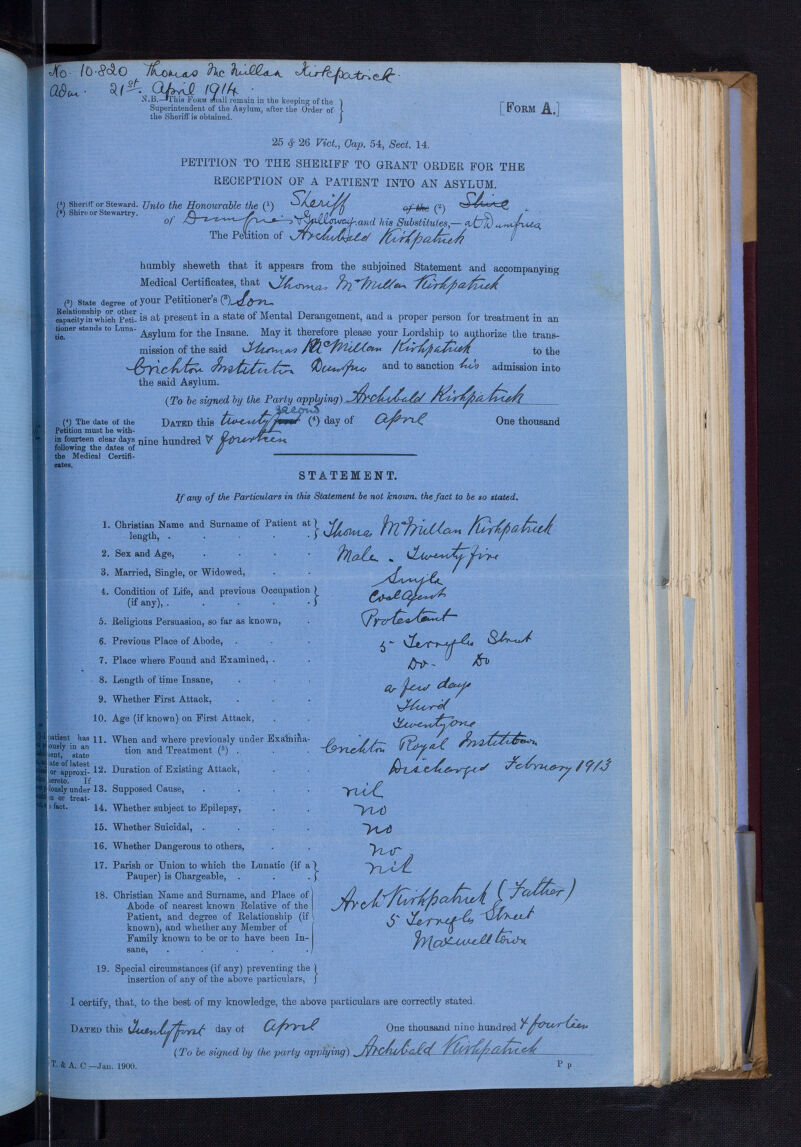 No 10.820 Thomas McMillan Kirkpatrick.
Adm. 21st. April 1914.
N.B.—This Form shall remain in the keeping of the
Superintendent of the Asylum, after the Order of
the Sheriff is obtained.
[FORM A.]
25 & 26 Vict., Cap. 54, Sect. 14.
PETITION TO THE SHERIFF TO GRANT ORDER FOR THE
RECEPTION OF A PATIENT INTO AN ASYLUM.
(¹) Sheriff or Steward.
(²) Shire or Stewartry.
Unto the Honourable the (¹) Sheriff of the (²) Shire
of Dumfries & Galloway and his Substitutes,— at Dumfries
The Petition of Archibald Kirkpatrick
humbly sheweth that it appears from the subjoined Statement and accompanying
Medical Certificates, that Thomas McMillan Kirkpatrick
(³) State degree of
Relationship or other
capacity in which Peti-
tioner stands to Luna-
tic.
your Petitioner's (³) Son
is at present in a state of Mental Derangement, and a proper person for treatment in an
Asylum for the Insane. May it therefore please your Lordship to authorize the trans-
mission of the said Thomas McMillan Kirkpatrick to the
Crichton Institution Dumfries and to sanction his admission into
the said Asylum.
(To be signed by the Party applying) Archibald Kirkpatrick
(⁴) The date of the
Petition must be with-
in fourteen clear days
following the dates of
the Medical Certifi-
cates.
second
DATED this twenty first (⁴) day of April One thousand
nine hundred & fourteen
STATEMENT.
If any of the Particulars in this Statement be not known, the fact to be so stated.
1. Christian Name and Surname of Patient at
length, . Thomas McMillan Kirkpatrick
2. Sex and Age, Male . Twenty five
3. Married, Single, or Widowed, Single
4. Condition of Life, and previous Occupation
(if any), . Coal Agent
5. Religious Persuasion, so far as known, Protestant
6. Previous Place of Abode, . 5 Terregles Street
7. Place where Found and Examined, . Do. Do
8. Length of time Insane, a few days
9. Whether First Attack, Third
10. Age (if known) on First Attack, Twenty one
11. When and where previously under Examina-
tion and Treatment (⁵) . Crichton Royal Institution
Discharged February 1913
patient has
ously in an
ent, state
ate of latest
or approxi-
hereto. If
iously under
n or treat-
s fact.
12. Duration of Existing Attack,
13. Supposed Cause, nil
14. Whether subject to Epilepsy, no
15. Whether Suicidal, . no
16. Whether Dangerous to others, no
17. Parish or Union to which the Lunatic (if a
Pauper) is Chargeable, . nil
18. Christian Name and Surname, and Place of
Abode of nearest known Relative of the
Patient, and degree of Relationship (if
known), and whether any Member of
Family known to be or to have been In-
sane,
Arch Kirkpatrick (Father)
5 Terregles Street
Maxwelltown
19. Special circumstances (if any) preventing the
insertion of any of the above particulars,
I certify, that, to the best of my knowledge, the above particulars are correctly stated.
DATED this Twenty first day of April One thousand nine hundred & fourteen
(To be signed by the party applying) Archibald Kirkpatrick
T. & A. C—Jan. 1900.
P p